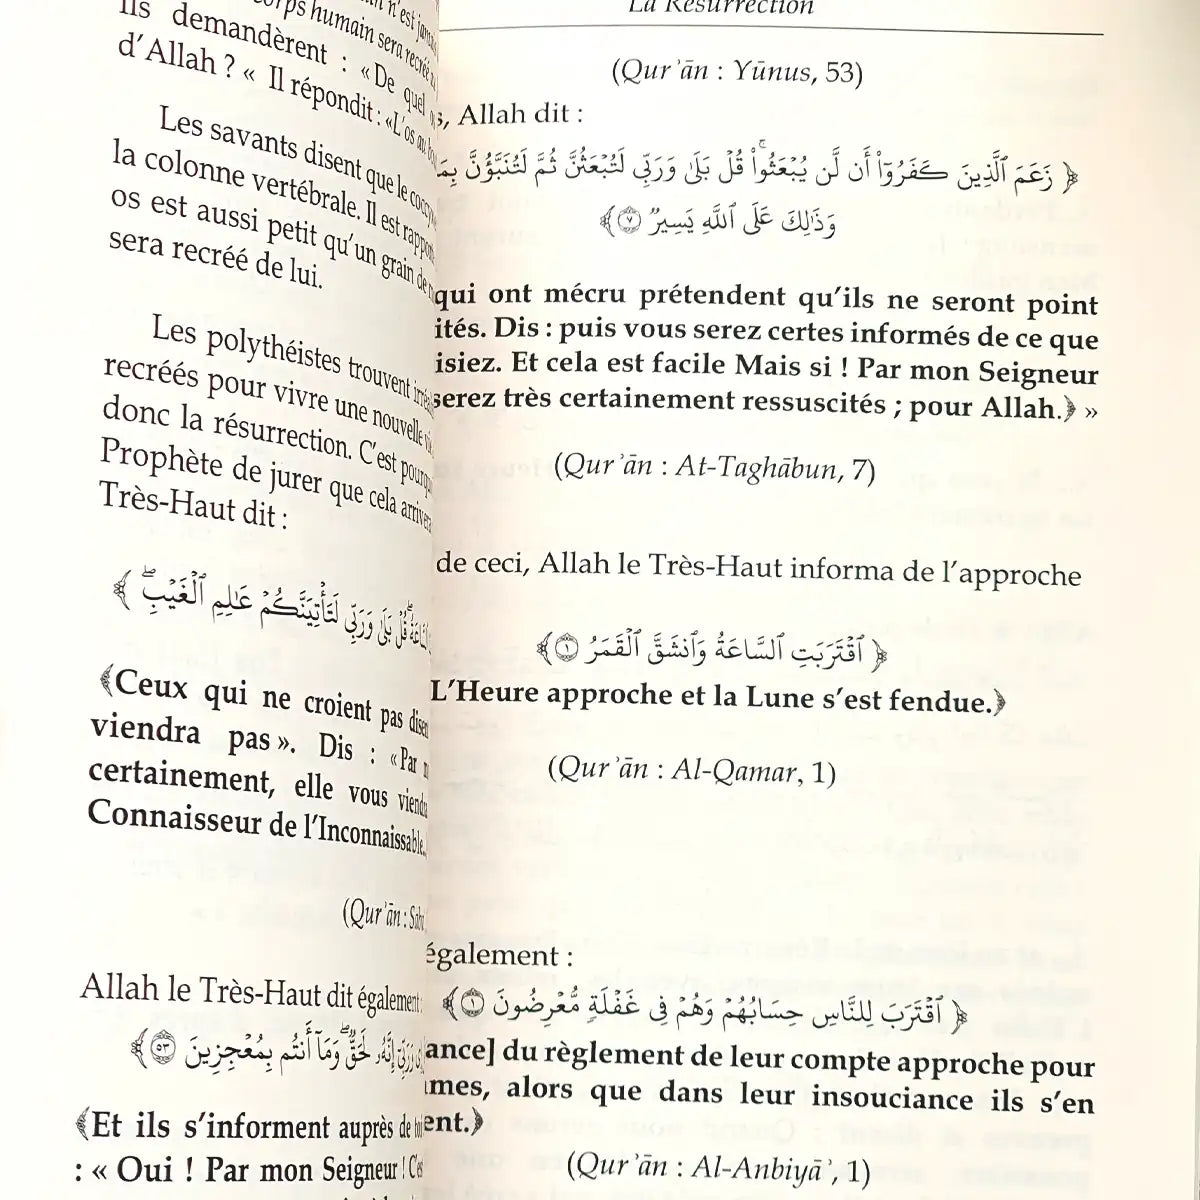 corps humain sera recréé
Ils demandèrent : « De quel
d'Allah ? « Il répondit : «L'os au
Les savants disent que le
la colonne vertébrale. Il est
os est aussi petit qu'un grain de
sera recréé de lui.
Les polythéistes trouvent
recréés pour vivre une nouvelle
donc la résurrection. C'est
Prophète de jurer que cela
Très-Haut dit :
قُلْ بَلَىٰ وَرَبِّى لَتَأْتِيَنَّكُمْ عَـٰلِمِ ٱلْغَيْبِ ۖ ﴾
﴾Ceux qui ne croient pas
viendra pas ». Dis : « Par
certainement, elle vous
Connaisseur de l'Inconnaissable.
(Qur'ān :
Allah le Très-Haut dit également
إِنَّهُۥ لَحَقٌّ ۖ وَمَآ أَنتُم بِمُعْجِزِينَ ﴿٥٣﴾ ﴾
﴾Et ils s'informent auprès de
: « Oui ! Par mon Seigneur !
La Résurrection
(Qur'ān : Yūnus, 53)
Allah dit :
﴿ زَعَمَ ٱلَّذِينَ كَفَرُوٓا۟ أَن لَّن يُبْعَثُوا۟ ۚ قُلْ بَلَىٰ وَرَبِّى لَتُبْعَثُنَّ ثُمَّ لَتُنَبَّؤُنَّ بِمَا
وَذَٰلِكَ عَلَى ٱللَّهِ يَسِيرٌ ﴿٧﴾ ﴾
qui ont mécru prétendent qu'ils ne seront point
ités. Dis : puis vous serez certes informés de ce que
isiez. Et cela est facile Mais si ! Par mon Seigneur
serez très certainement ressuscités ; pour Allah.﴿ »
(Qur'ān : At-Taghābun, 7)
de ceci, Allah le Très-Haut informa de l'approche
﴿ ٱقْتَرَبَتِ ٱلسَّاعَةُ وَٱنشَقَّ ٱلْقَمَرُ ﴿١﴾ ﴾
L'Heure approche et la Lune s'est fendue.﴿
(Qur'ān : Al-Qamar, 1)
également :
﴿ ٱقْتَرَبَ لِلنَّاسِ حِسَابُهُمْ وَهُمْ فِى غَفْلَةٍ مُّعْرِضُونَ ﴿١﴾ ﴾
ance] du règlement de leur compte approche pour
mes, alors que dans leur insouciance ils s'en
ent.﴿
(Qur'ān : Al-Anbiyā', 1)